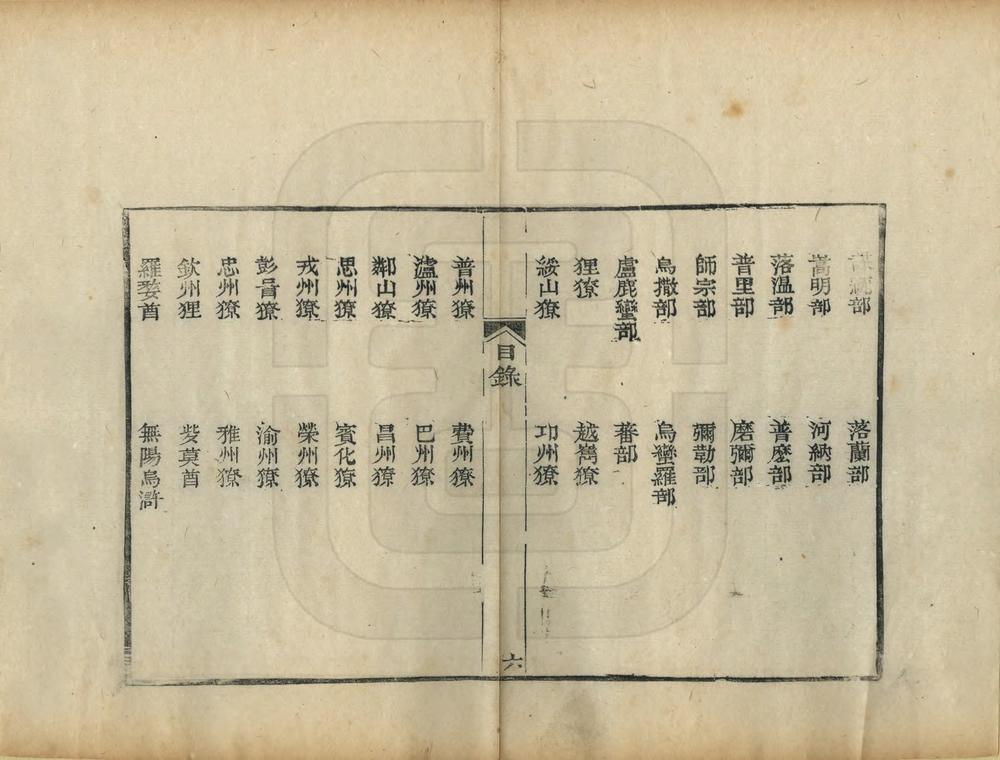 部　落蘭部
嵩明部　河納部
落溫部　普麼部
普里部　磨彌部
師宗部　彌勒部
烏撒部　烏蠻羅部
盧鹿蠻部　蕃部
狸獠　越巂獠
綏山獠　卭州獠
目錄　六
普州獠　費州獠
瀘州獠　巴州獠
鄰山獠　昌州獠
思州獠　賓化獠
戎州獠　榮州獠
彭獠　渝州獠
忠州獠　雅州獠
欽州狸　莫酋
羅婺酋　無陽烏滸